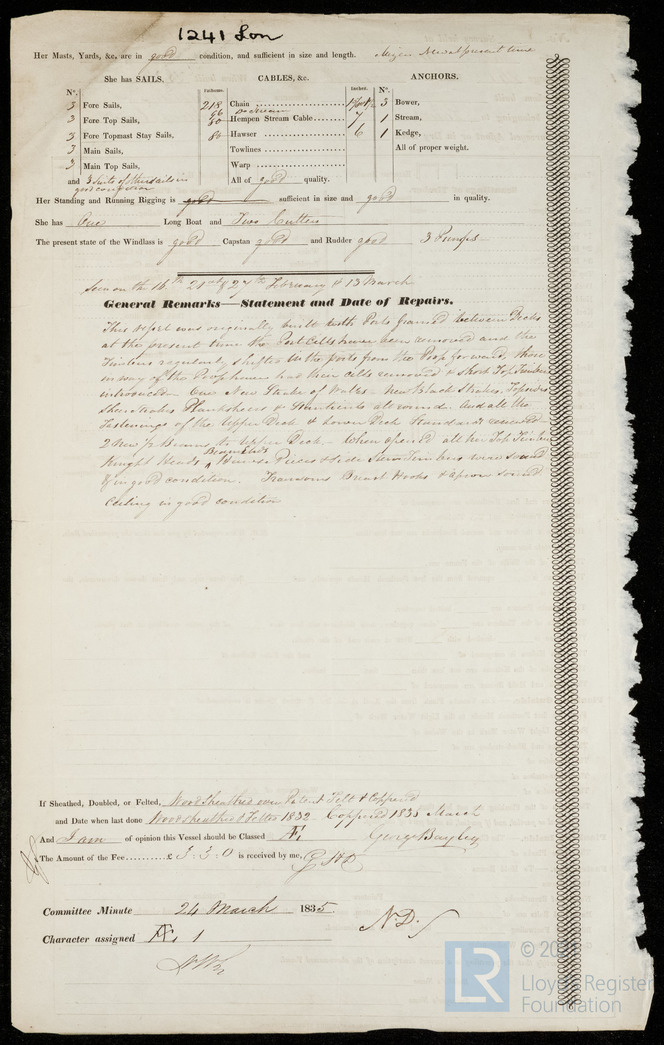 1241 Lon
Her Masts, Yards, &c. are in good condition, and sufficient in size and length. Mizen New at present time
She has SAILS.
CABLES, &c.
ANCHORS.
N°.
Fathoms.
Inches.
N°.
3 Fore Sails,
218 Chain
3 Bower,
3 Fore Top Sails,
Hempen Stream Cable
7
1 Stream,
3 Fore Topmast Stay Sails,
Hawser
6
1 Kedge,
3 Main Sails,
Towlines
All of proper weight.
3 Main Top Sails,
Warp
and 3 Suits of other sails in good condition
All of good quality.
Her Standing and Running Rigging is good sufficient in size and good in quality.
She has One Long Boat and Two Cutters
The present state of the Windlass is good Capstan good and Rudder good 3 Pumps
Seen on the 16th 21st & 27th February & 13 March
General Remarks—Statement and Date of Repairs.
This report was originally built with Ports framed between Decks
at the present time the Port Cells have been removed and the
Timbers regularly shifted in the ports from the Poop forward, those
in way of the Poop have had their cells removed & Short Top Timbers
introduced. One New Strake of Wales New Black Strakes, Topsides
Sheerstrakes Planksheers & all round. And all the
fastenings of the Upper Deck & Lower Deck Standards renewed
2 New 1/2 Beams to Upper Deck. When opened all her Top Timbers
Knight Heads Beam Ends Hawse Pieces & Side Stern Timbers were sound
& in good condition. Transoms Breast Hooks & Apron sound
Ceiling in good condition
If Sheathed, Doubled, or Felted, Wood Sheathed over Patent Felt & Coppered
and Date when last done Wood sheathed & Felted 1832 Coppered 1835 March
And I am of opinion this Vessel should be Classed Æ1 George Bayley
The Amount of the Fee £ 3:3:0 is received by me,
Committee Minute 24 March 1835
N.D.
Character assigned Æ 1
LR
© 20
Lloyd's Register
Foundation